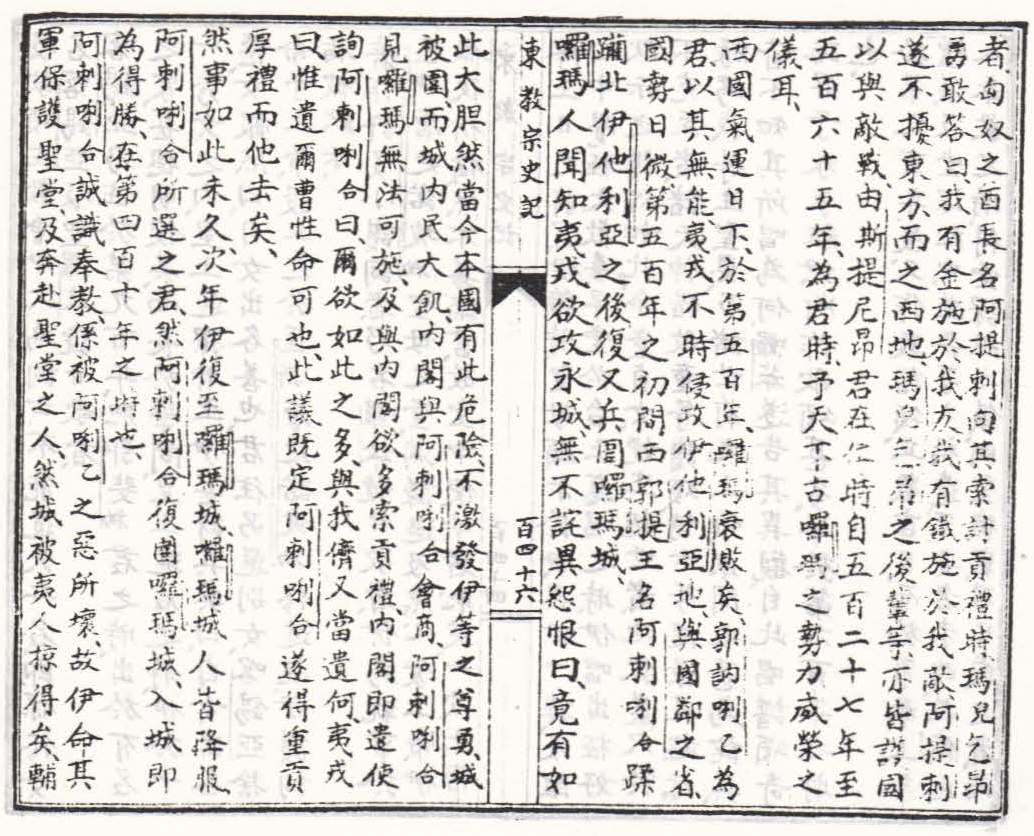 者、匈奴之酋長名阿提剌向其索討貢禮時瑪兒乞昂
勇敢答曰我有金施於我友我有鐵施於我敵阿提剌
遂不擾東方、而之西地、瑪兒乞昂之後輩等亦皆護國
以與敵戰、由斯提尼昂君在位時自五百二十七年至
五百六十五年、為君時、予天下古囉瑪之勢力威榮之
儀耳、
西國氣運日下、於第五百年、囉瑪衰敗矣、郭訥唎乙為
君、以其無能夷戎不時侵攻伊他利亞地、與國鄰之省、
國勢日微、第五百年之初間西郭提王名阿剌唎合蹂
躪北伊他利亞之後復又兵圍囉瑪城、
囉瑪人聞知夷戎欲攻永城、無不詫異怨恨曰、竟有如
東教宗史記 百四十六
此大胆然當今本國有此危險、不激發伊等之尊勇、城
被圍、而城內民大飢、內閣與阿剌唎合會商、阿剌唎合
見囉瑪無法可施、及與內閣欲多索貢禮、內閣即遣使
詢阿剌唎合曰、爾欲如此之多、與我儕又當遺何、夷戎
曰惟遺爾曹性命可也、此議既定阿剌唎合遂得重貢
厚禮而他去矣、
然事如此未久、次年伊復至囉瑪城、囉瑪城人皆降服、
阿剌唎合所選之君、然阿剌唎合復圍囉瑪城、入城即
為得勝、在第四百十年之時也、
阿剌唎合誠識奉教、係被阿唎乙之惡所壞故伊命其
軍保護聖堂、及奔赴聖堂之人、然城被夷人掠得矣、輔